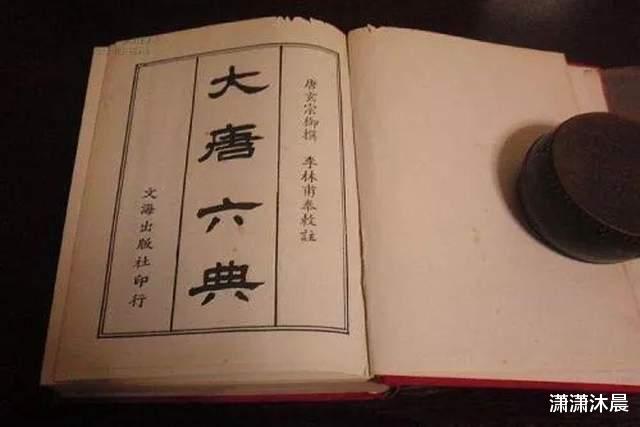 唐玄宗御撰 李林甫奉敕註
大唐六典
文海出版社印行
潇潇沐晨